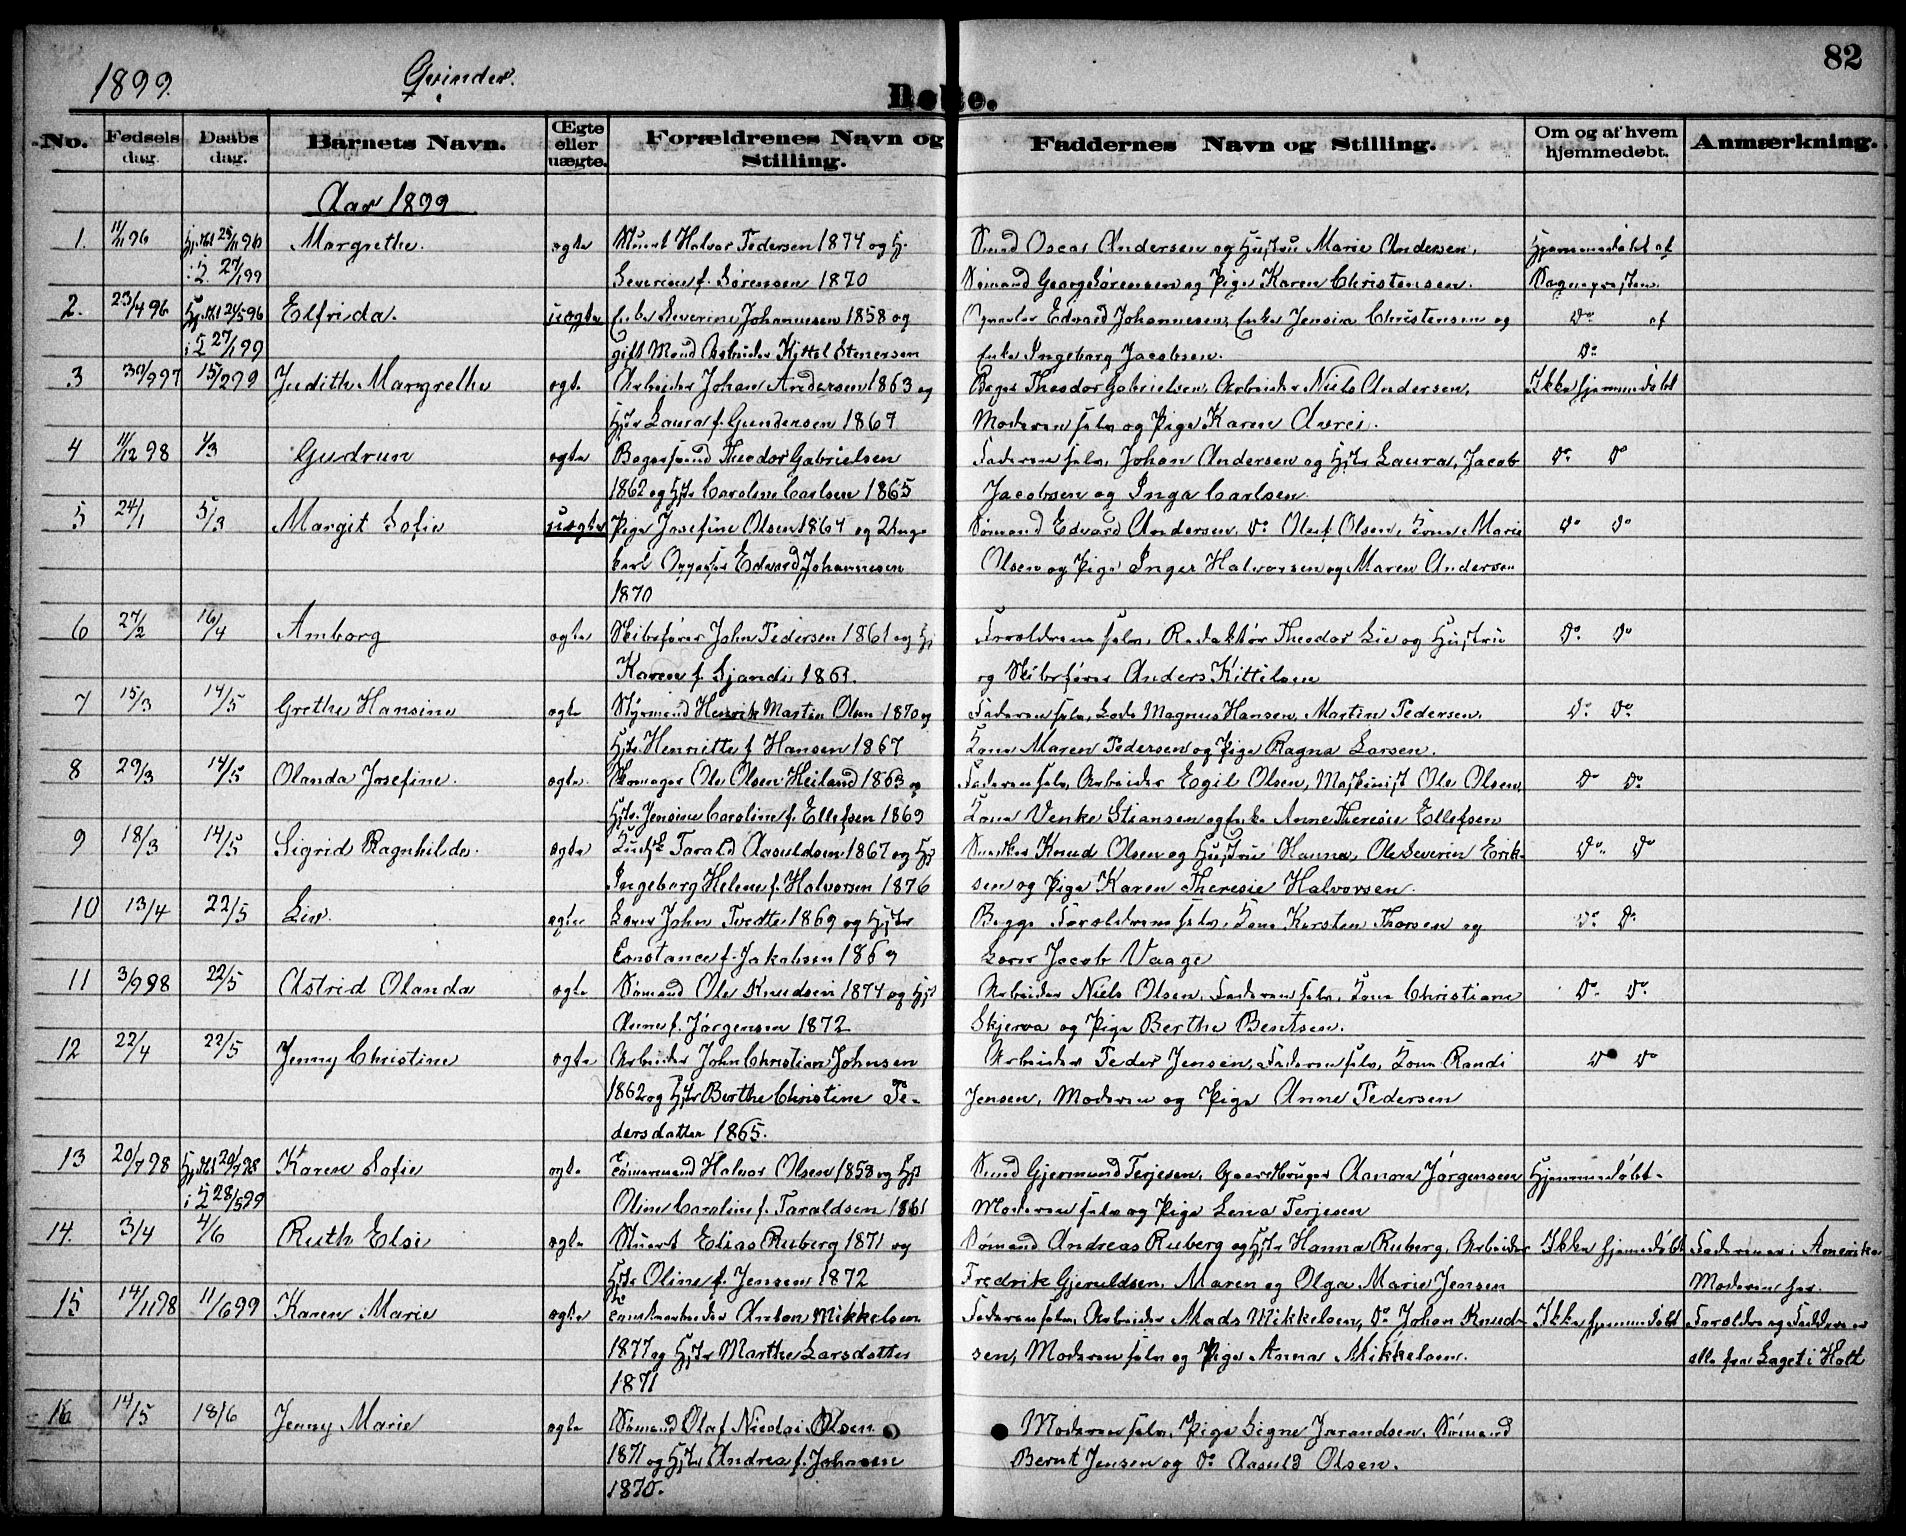 82
1899. Qvinder.
Døbte.
No. Fødsels dag. Daabs dag. Barnets Navn. Œgte eller uægte. Forældrenes Navn og Stilling. Faddernes Navn og Stilling. Om og af hvem hjemmedøbt. Anmærkning.
Aar 1899
1. 11/11 96 Hj.dbt 25/11 96 Margrethe. ægte Stuert Halvor Pedersen 1874 og H. Smed Oscar Andersen og Hustru Marie Andersen, Hjemmedøbt af
i K 27/1 99 Severine f. Sørensen 1870 Sømand Georg Sørensen og Pige Karen Christensen. Sognepresten.
2. 23/4 96 Hj.dbt 24/5 96 Elfrida. uægte Enke Severine Johannesen 1858 og Edvard Johannesen, Enke Jensine Christensen og Do af
i K 27/1 99 gift Mand Arbeider Kittel Stenersen Enke Ingeborg Jacobsen. Do
3 30/9 97 15/2 99 Judith Margrethe ægte Arbeider Johan Andersen 1863 og Bager Theodor Gabrielsen, Arbeider Niels Andersen, Ikke hjemmedøbt
Hstr Laura f. Gundersen 1867 Moderen selv og Pige Karen
4 11/12 98 1/3 Gudrun ægte Bagersvend Theodor Gabrielsen Faderen selv, Johan Andersen og Hstr Laura, Jacob Do Do
1862 og Hstr Caroline Carlsen 1865 Jacobsen og Inga Carlsen
5 24/1 5/3 Margit Sofie uægte Pige Josefine Olsen 1867 og Unge- Sømand Edvard Andersen, Do Oluf Olsen, Kone Marie Do Do
karl Edvard Johannesen Olsen og Pige Inger Halvorsen og Maren Andersen
1870
6 27/2 16/4 Amborg ægte Skibsfører John Pedersen 1861 og Hst Forældrene selv, Redaktør Theodor Lie og Hustru Do Do
Karen f. 1861. og Skibsfører Anders Kittilsen
7 15/3 14/5 Grethe Hansine ægte Styrmand Henrik Martin Olsen 1870 og Faderen selv, Lods Magnus Hansen, Martin Pedersen, Do Do
Hstr. Henriette f. Hansen 1867 Kone Maren Pedersen og Pige Ragna Larsen.
8 29/3 14/5 Olanda Josefine. ægte. Skomager Ole Olsen Heiland 1863 og Faderen selv, Arbeider Egil Olsen, Maskinist Ole Olsen, Do Do
Hstr. Jensine Caroline f. Ellefsen 1869 Kone Venke Stiansen og Enke Anne Theresie Ellefsen
9 18/3 14/5 Sigrid Ragnhilde. ægte Tarald Aasuldsen 1867 og Hst Knud Olsen og Hustru Hanna, Ole Severin Erik-
Do Do
Ingeborg Helene f. Halvorsen 1876 sen og Pige Karen Theresie Halvorsen.
10 13/4 22/5 Liv. ægte Lærer John Tvedte 1869 og Hstr Begge Forældrene selv, Kone Karsten Thorsen og Do Do
Constance f. Jakobsen 1869 Lærer Jacob Vaage
11 3/9 98 22/5 Astrid Olanda ægte Sømand Ole Knudsen 1874 og Hst Arbeider Niels Olsen, Faderen selv, Kone Christiane Do Do
Anne f. Jørgensen 1872 Skjerva og Pige Berthe Bentsen.
12 22/4 22/5 Jenny Christine ægte Arbeider John Christian Johnsen Arbeider Peder Jensen, Faderen selv, Kone Randi Do Do
1862 og Hstr Berthe Christine Pe- Jensen, Moderen og Pige Anne Pedersen
dersdatter 1865.
13 20/7 98 Hj.dbt 20/7 98 Karen Sofie ægte Tømmermand Halvor Olsen 1853 og Hst Smed Gjermund Terjesen, Gaardbruger Aanon Jørgensen Hjemmedøbt
i K 28/5 99 Oline Caroline f. Taraldsen 1861 Moderen selv og Pige Lena Terjesen
14. 3/4 4/6 Ruth Elsi ægte Stuert Elias Ruberg 1871 og Sømand Andreas Ruberg og Hstr Hanna Ruberg, Arbeider Ikke hjemmedøbt Faderen er i Amerika
Hstr Oline f. Jensen 1872 Fredrik Gjeruldsen, Maren og Olga Marie Jensen Moderen her.
15 14/11 98 11/6 99 Karen Marie ægte Anton Mikkelsen Faderen selv, Arbeider Mads Mikkelsen, Do Johan Knud- Ikke hjemmedøbt Forældre og Faddere er
1877 og Hstr Marthe Larsdatter sen, Moderen selv og Pige Anna Mikkelsen. alle fra Laget i Holt
1871
16 14/5 18/6 Jenny Marie ægte Sømand Oluf Nicolai Olsen Moderen selv, Pige Signe Jorandsen, Sømand
1871 og Hstr Andrea f. Johnsen Bernt Jensen og Do Aasuld Olsen.
1870.